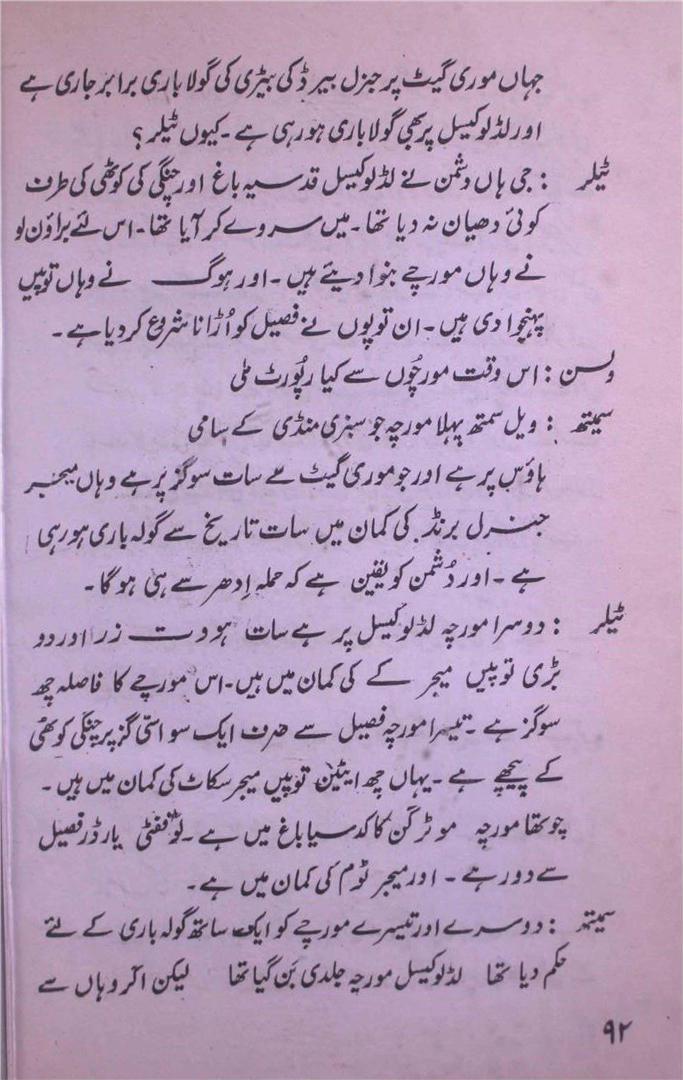 جہاں موری گیٹ پر جنرل بیرڈ کی بیٹری کی گولا باری برابر جاری ہے
اور لڈلو کیسل پر بھی گولا باری ہو رہی ہے ۔ کیوں ٹیلر ؟
ٹیلر : جی ہاں دشمن نے لڈلو کیسل قدسیہ باغ اور چنگی کی کوٹھی کی طرف
کوئی دھیان نہ دیا تھا ۔ میں سروے کر آیا تھا ۔ اس لئے براؤن لو
نے وہاں مورچے بنوا دیئے ہیں ۔ اور ہوگ نے وہاں توپیں
پہنچوا دی ہیں ۔ ان توپوں نے فصیل کو اُڑانا شروع کر دیا ہے ۔
ولسن : اس وقت مورچُوں سے کیا رپُورٹ ملی
سمیتھ : ویل سمتھ پہلا مورچہ جو سبزی منڈی کے سامی
ہاؤس پر ہے اور جو موری گیٹ سے سات سو گز پر ہے وہاں میجر
جنرل برنڈ کی کمان میں سات تاریخ سے گولہ باری ہو رہی
ہے ۔ اور دُشمن کو یقین ہے کہ حملہ اِدھر سے ہی ہو گا ۔
ٹیلر : دوسرا مورچہ لڈلو کیسل پر ہے سات ہووت زر اور دو
بڑی توپیں میجر کے کی کمان میں ہیں ۔ اس مورچے کا فاصلہ چھ
سو گز ہے ۔ تیسرا مورچہ فصیل سے صرف ایک سو اسّی گز پر چنگی کوٹھی
کے پیچھے ہے ۔ یہاں چھ ایٹین توپیں میجر سکاٹ کی کمان میں ہیں ۔
چوتھا مورچہ موٹر گن کا کدسیا باغ میں ہے ۔ یارڈز فصیل
سے دور ہے ۔ اور میجر ٹوم کی کمان میں ہے ۔
سمیتھ : دوسرے اور تیسرے مورچے کو ایک ساتھ گولہ باری کے لئے
حکم دیا تھا لڈلو کیسل مورچہ جلدی بَن گیا تھا لیکن اگر وہاں سے
۹۲